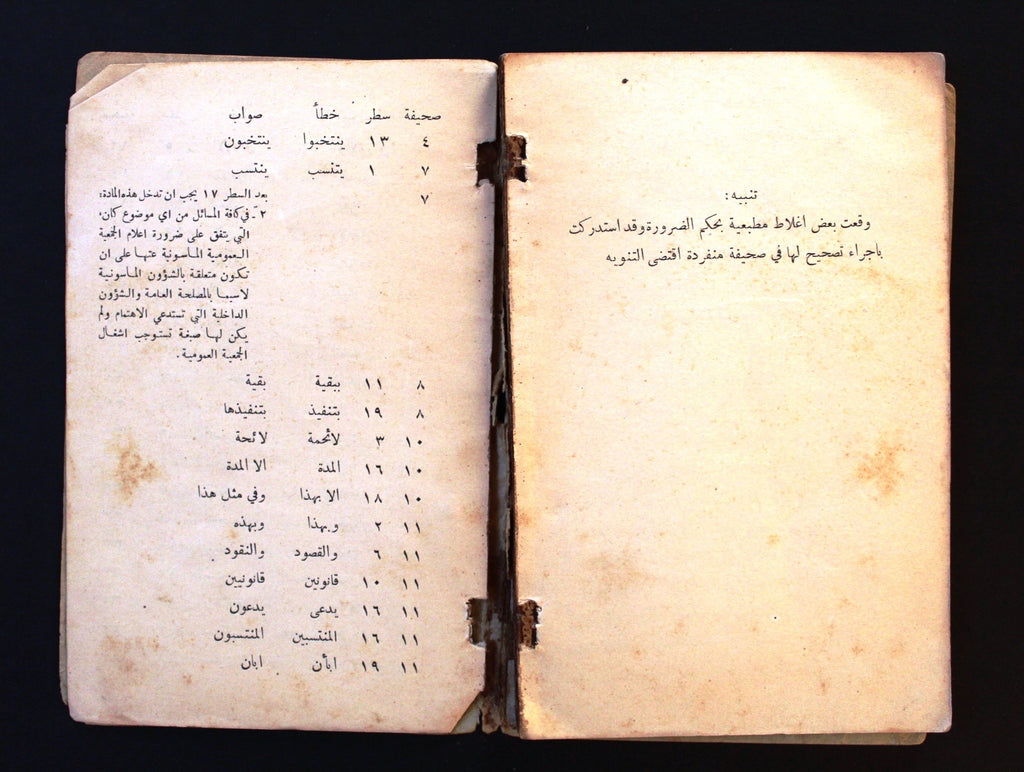 تنبيه :
وقعت بعض اغلاط مطبعية بحكم الضرورة وقد استدركت
باجراء تصحيح لها في صحيفة منفردة اقتضى التنويه
صحيفة سطر خطأ صواب
٤ ١٣ ينتخبوا ينتخبون
٧ ١ يتنسب ينتسب
٧ بعد السطر ١٧ يجب ان تدخل هذه المادة:
٢ـ في كافة المسائل من اي موضوع كان،
التي يتفق على ضرورة اعلام الجمعية
العمومية الماسونية عنها على ان
تكون متعلقة بالشؤون الماسونية
لاسيما بالمصلحة العامة والشؤون
الداخلية التي تستدعي الاهتمام ولم
يكن لها صبغة تستوجب اشغال
الجمعية العمومية .
٨ ١١ ببقية بقية
٨ ١٩ بتنفيذ بتنفيذها
١٠ ٣ لائحمة لائحة
١٠ ١٦ المدة الا المدة
١٠ ١٨ الا بهذا وفي مثل هذا
١١ ٢ وبهذا وبهذه
١١ ٦ والقصود والنقود
١١ ١٠ قانونين قانونيين
١١ ١٦ يدعى يدعون
١١ ١٦ المنتسبين المنتسبون
١١ ١٩ ابأن ابان